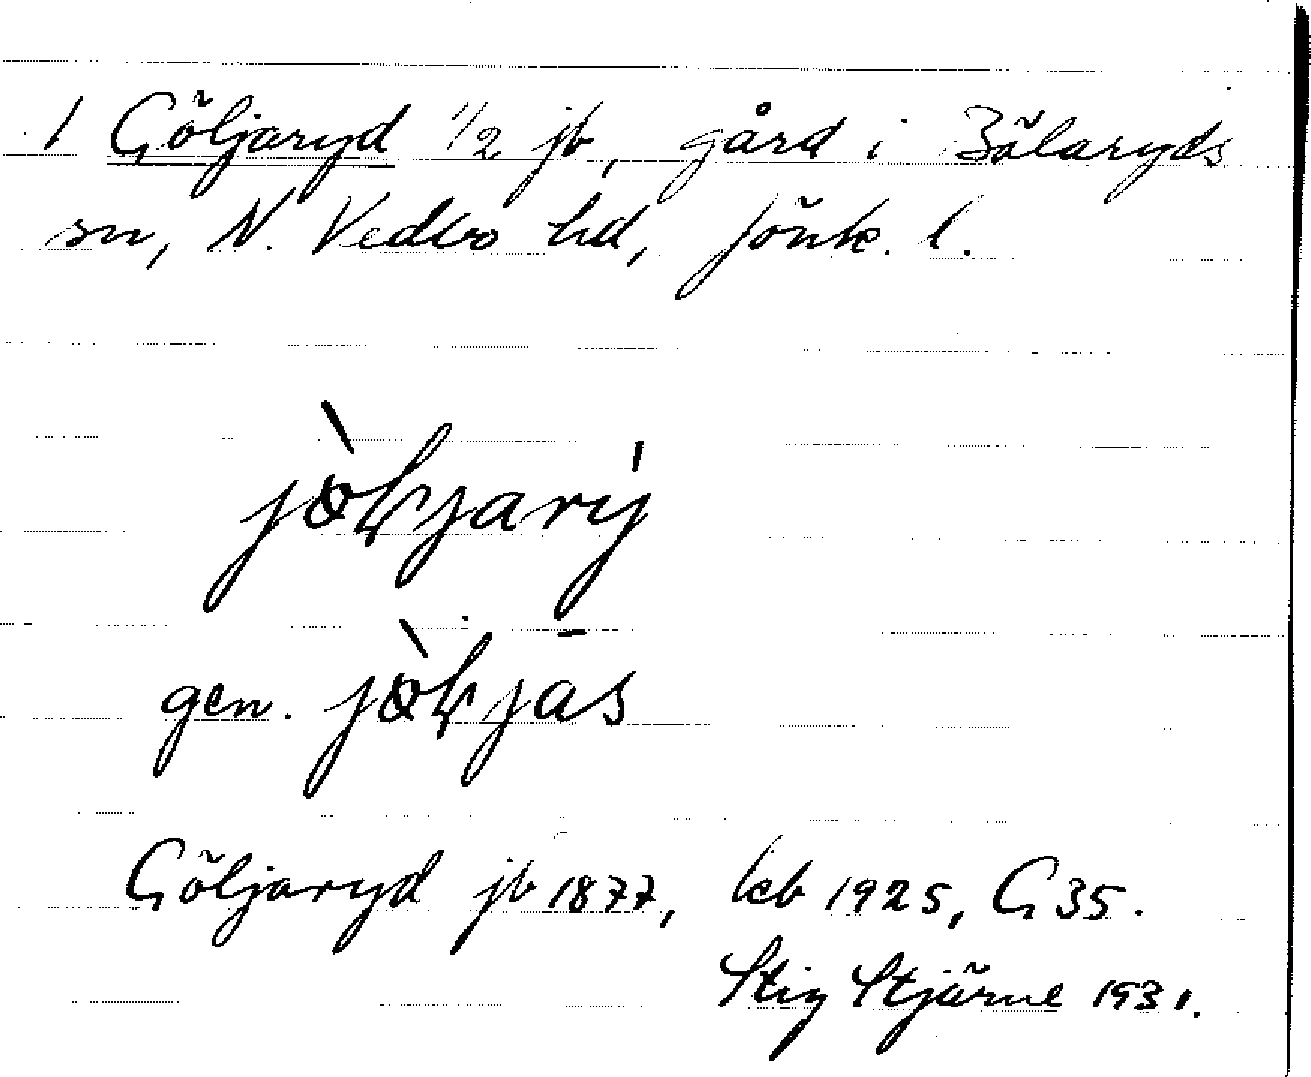 1 Göljaryd 1/2 jb, gård i Bälaryds
sn, N. Vedbo hd, Jönk. l.
jòḷjarý
gen. jòḷjās
Göljaryd jb 1877, kb 1925, G 35.
Stig Stjärne 1931.